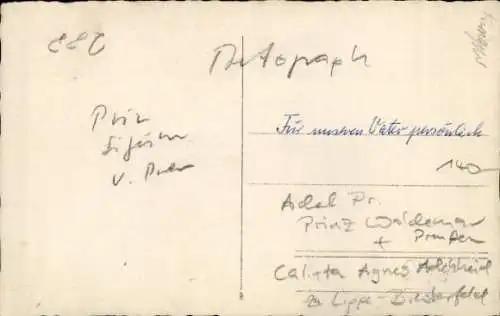 Autograph
Prinz
v.
Für unseren Vater persönlich
140,-
Adel Pr.
Prinz Waldemar
+ Preußen
Calixta Agnes Adelheid
zu Lippe-Biesterfeld